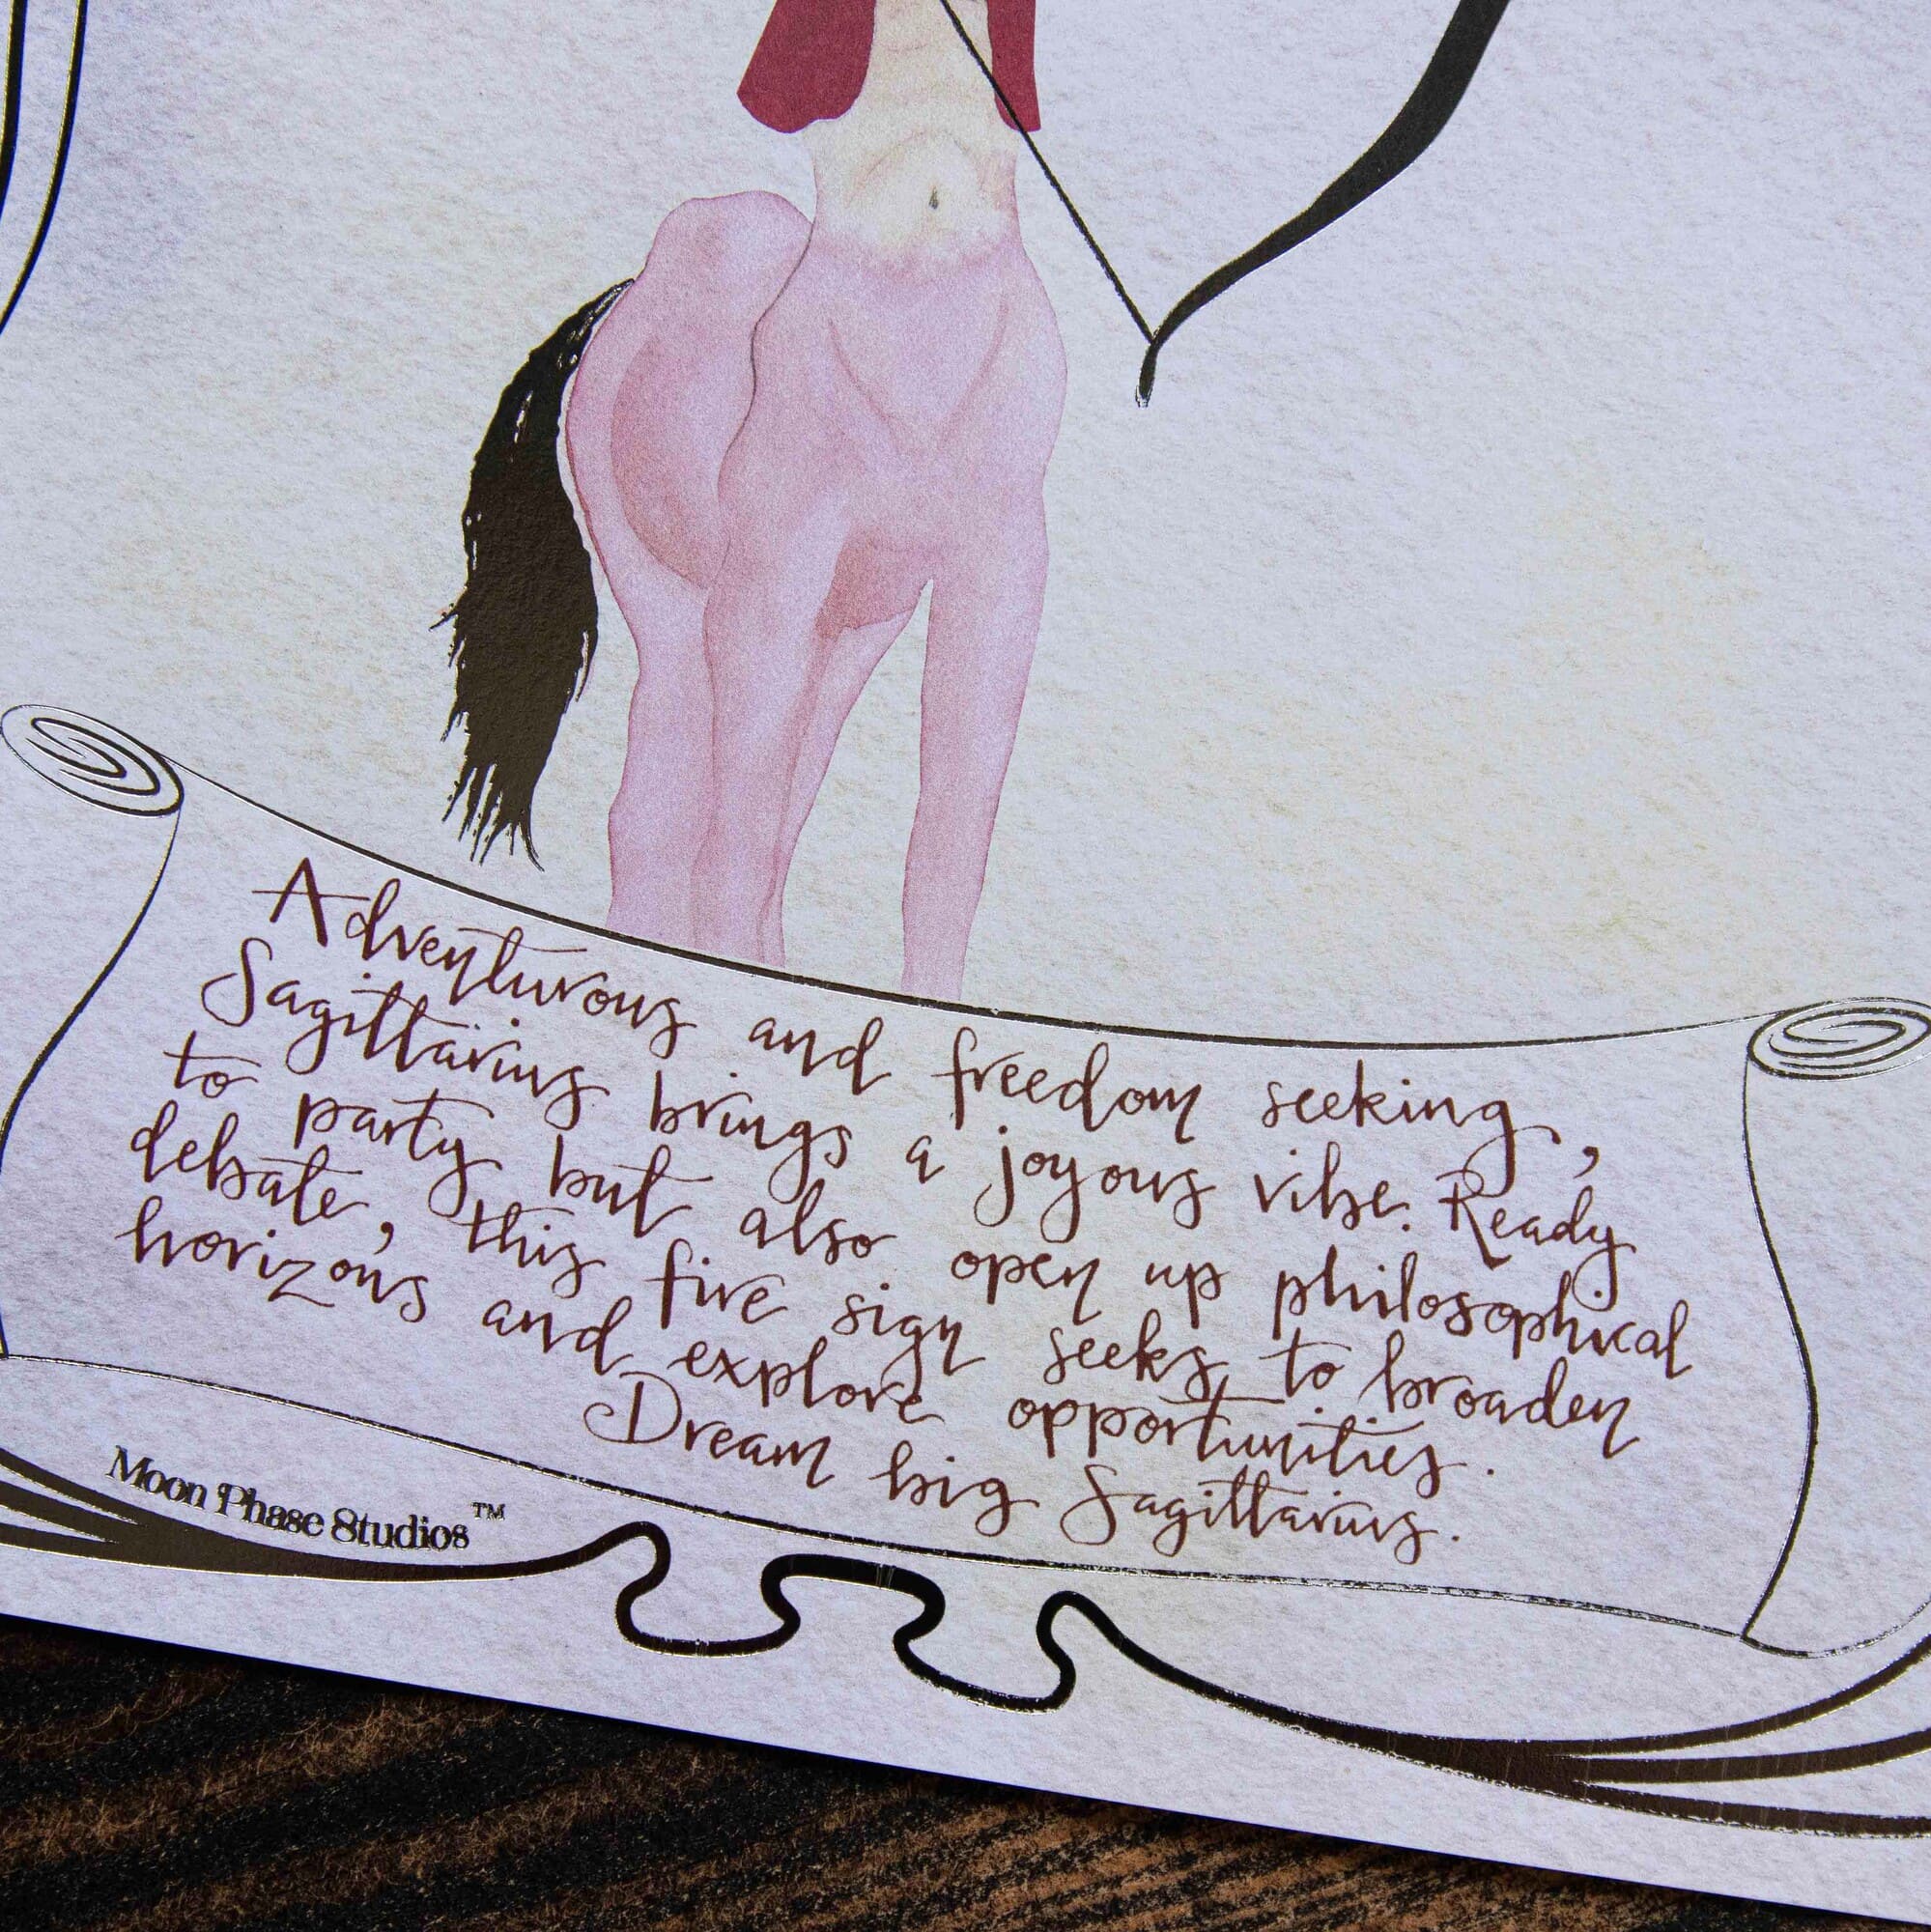 Adventurous and freedom seeking,
Sagittarius brings a joyous vibe. Ready
to party but also open up philosophical
debate, this fire sign seeks to broaden
horizons and explore opportunities.
Dream big Sagittarius.
Moon Phase Studios™